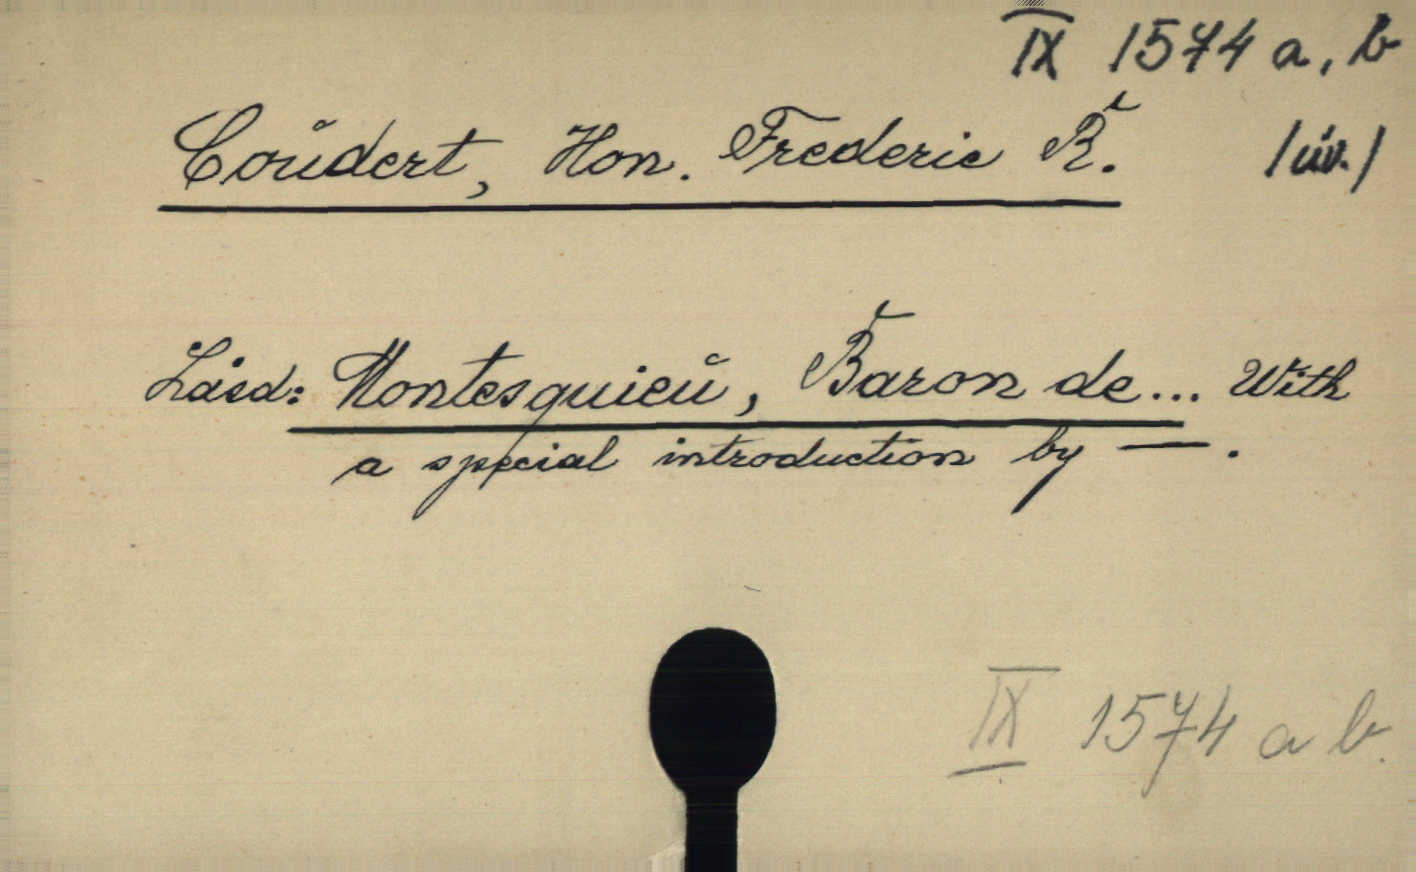 IX 1574 a, b
Coudert, Hon. Frederic R. /üv./
Lásd: Montesquieu, Baron de... With
a special introduction by —.
IX 1574 a b.